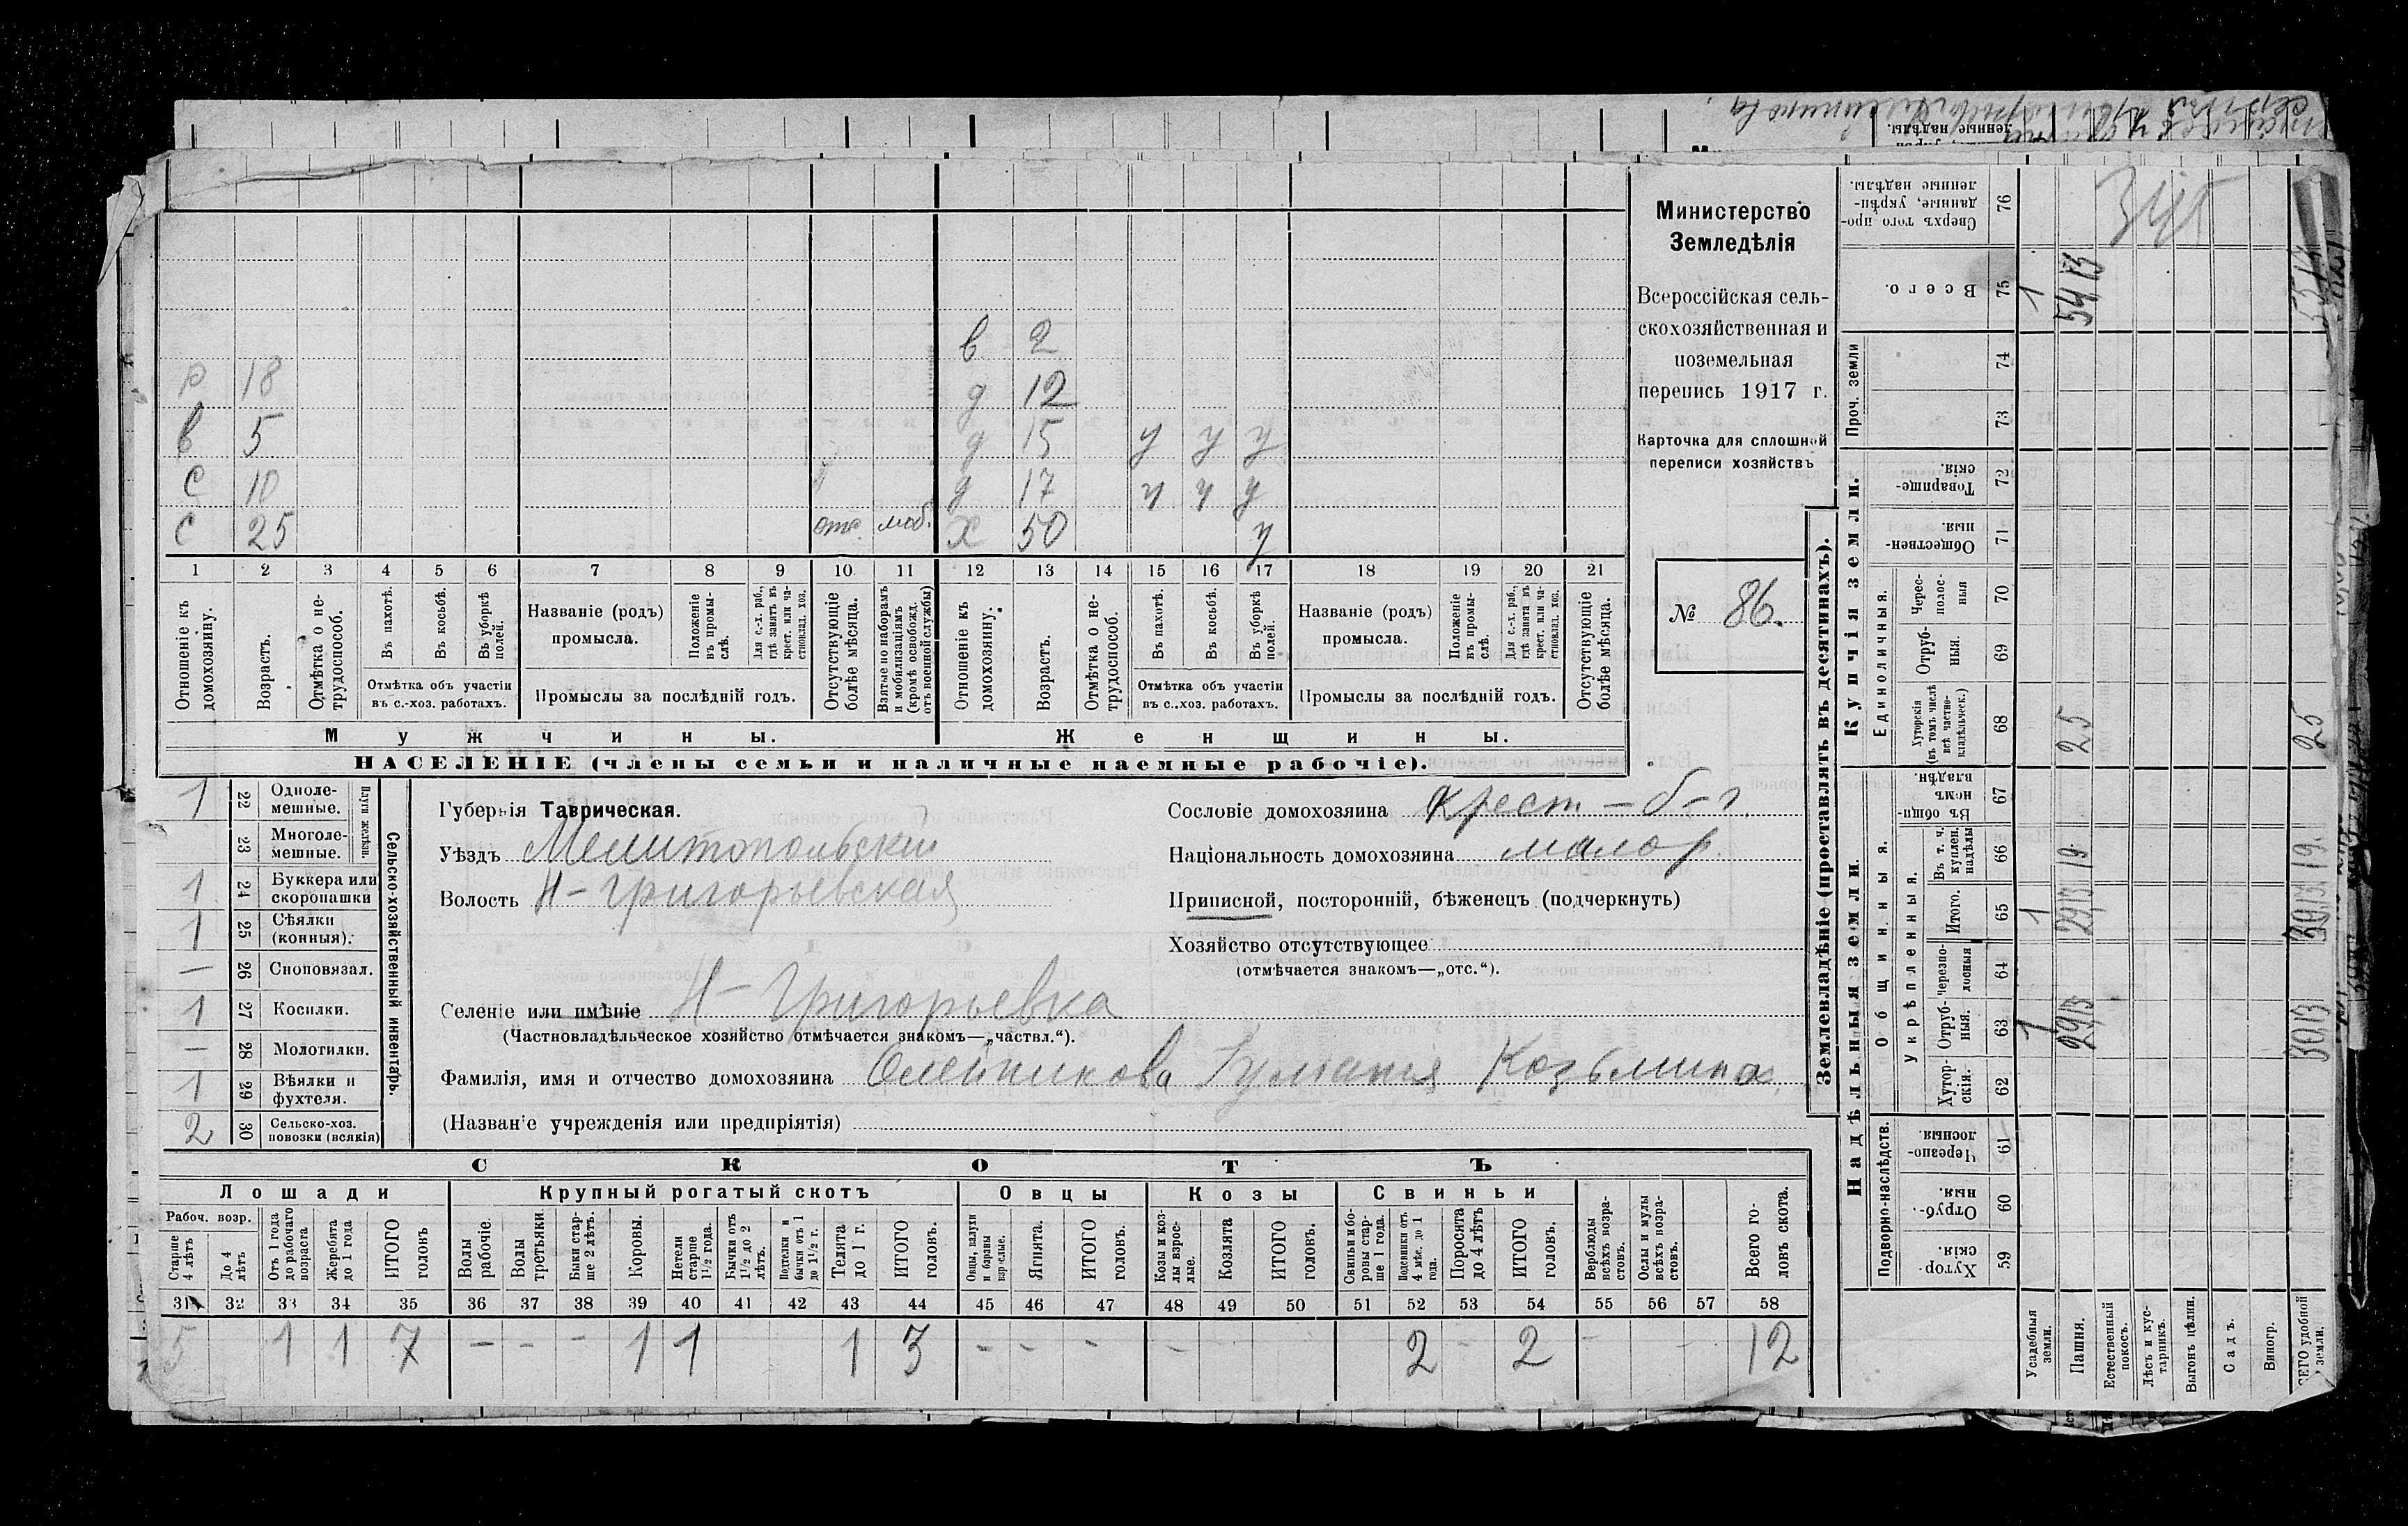 Министерство
Земледѣлія
Всероссійская сель-
скохозяйственная и
поземельная
перепись 1917 г.
Карточка для сплошной
переписи хозяйствъ
№ 86.
в 2
Р 18 д 12
в 5 д 15 у у у
С 10 д 17 у у у
С 25 отс. моб. Х 50 у
1 2 3 4 5 6 7 8 9 10 11 12 13 14 15 16 17 18 19 20 21
Отношеніе къ домохозяину.
Возрастъ.
Отмѣтка о не-трудоспособ.
Въ пахотѣ.
Въ косьбѣ.
Въ уборкѣ полей.
Отмѣтка объ участіи въ с.-хоз. работахъ.
Названіе (родъ) промысла.
Положеніе въ промы-слѣ.
Для с.-х. раб., гдѣ занятъ въ крест. или ча-стновлад. хоз.
Промыслы за послѣдній годъ.
Отсутствующіе болѣе мѣсяца.
Взятые по наборамъ и мобилизаціямъ (кромѣ освобожд. отъ военной службы)
Отношеніе къ домохозяину.
Возрастъ.
Отмѣтка о не-трудоспособ.
Въ пахотѣ.
Въ косьбѣ.
Въ уборкѣ полей.
Отмѣтка объ участіи въ с.-хоз. работахъ.
Названіе (родъ) промысла.
Положеніе въ промы-слѣ.
Для с.-х. раб., гдѣ занята въ крест. или ча-стновлад. хоз.
Промыслы за послѣдній годъ.
Отсутствующіе болѣе мѣсяца.
Мужчины. Женщины.
НАСЕЛЕНІЕ (члены семьи и наличные наемные рабочіе).
1 22 Одноле-мешные.
23 Многоле-мешные.
Плуги желѣзн.
1 24 Буккера или скоропашки
1 25 Сѣялки (конныя).
— 26 Сноповязал.
1 27 Косилки.
— 28 Молотилки.
1 29 Вѣялки и фухтеля.
2 30 Сельско-хоз. повозки (всякія)
Сельско-хозяйственный инвентарь.
Губернія Таврическая.
Уѣздъ Мелитопольскій
Волость Н-Григорьевская
Селеніе или имѣніе Н-Григорьевка
(Частновладѣльческое хозяйство отмѣчается знакомъ—„частвл.“).
Фамилія, имя и отчество домохозяина Олейникова Гулианія Козьмина
(Названіе учрежденія или предпріятія)
Сословіе домохозяина Крест-б-г.
Національность домохозяина малор.
Приписной, посторонній, бѣженецъ (подчеркнуть)
Хозяйство отсутствующее
(отмѣчается знакомъ—„отс.“).
СКОТЪ
Лошади Крупный рогатый скотъ Овцы Козы Свиньи
Рабоч. возр.
Старше 4 лѣтъ
До 4 лѣтъ
Отъ 1 года до рабочаго возраста
Жеребята до 1 года
ИТОГО головъ
Волы рабочіе.
Волы третьяки
Быки стар-ше 2 лѣтъ.
Коровы.
Нетели старше 1½ года.
Бычки отъ 1½ до 2 лѣтъ.
Подтелки и бычки отъ 1 до 1½ г.
Телята до 1 г.
ИТОГО головъ.
Овцы, валухи и бараны взрослые.
Ягнята.
ИТОГО головъ.
Козы и коз-лы взрос-лые.
Козлята
ИТОГО головъ.
Свиньи и бо-ровы стар-ше 1 года.
Подсвинки отъ 4 мѣс. до 1 года.
Поросята до 4 лѣтъ
ИТОГО головъ.
Верблюды всѣхъ возра-стовъ.
Ослы и мулы всѣхъ возра-стовъ.
Всего го-ловъ скота.
31 32 33 34 35 36 37 38 39 40 41 42 43 44 45 46 47 48 49 50 51 52 53 54 55 56 57 58
5 1 1 7 - - - 1 1 1 3 - - - - 2 - 2 - - 12
Землевладѣніе (проставлять въ десятинахъ).
Надѣльныя земли Купчія земли.
Подворно-наслѣдств.
Общинныя.
Укрѣпленныя.
Единоличныя.
Проч. земли
Хутор-скія. 59
Отруб-ныя. 60
Черезпо-лосныя. 61
Хутор-скія. 62
Отруб-ныя. 63
Черезпо-лосныя 64
Итого. 65
Въ т. ч. куплен. надѣлы 66
Въ общин-номъ владѣн. 67
Хуторскія (въ томъ числѣ всѣ частно-владѣльческ.) 68
Отруб-ныя. 69
Черес-полос-ныя 70
Обществен-ныя. 71
Товарище-скія. 72
73
74
Всего. 75
Сверхъ того про-данные, укрѣп-ленные надѣлы. 76
Усадебныя земли. 1 1 1
Пашня. 2913 2913 19 25 5413
Естественный покосъ.
Лѣсъ и кус-тарникъ.
Выгонъ цѣлин.
Садъ.
Виногр.
ВСЕГО удобной земли. 3013 3013 19 25 5513
ленные надѣлы.